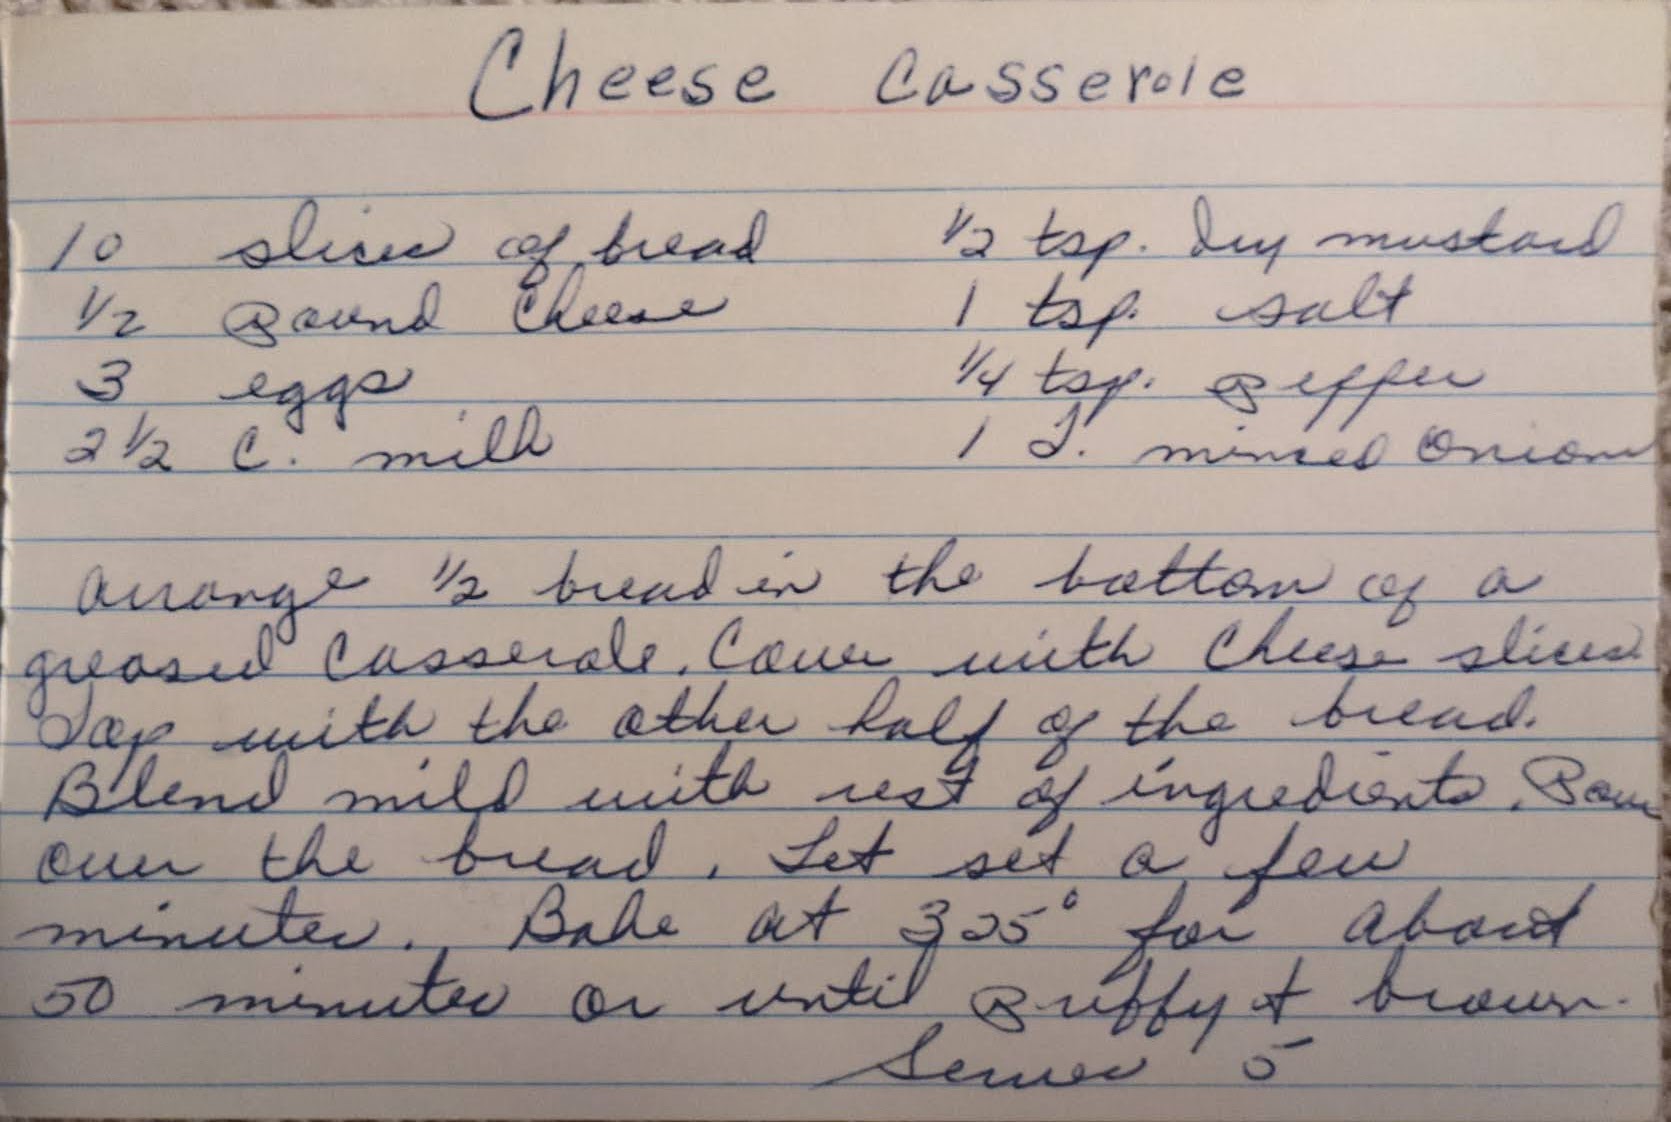 Cheese Casserole
10 slices of bread
1/2 Pound Cheese
3 eggs
2 1/2 C. milk
1/2 tsp. Dry mustard
1 tsp. salt
1/4 tsp. Pepper
1 T. minced Onion
Arrange 1/2 bread in the bottom of a
greased Casserole. Cover with Cheese slices
Top with the other half of the bread.
Blend milk with rest of ingredients. Pour
over the bread. Let set a few
minutes. Bake at 325° for about
50 minutes or until Puffy & brown.
Serves 5